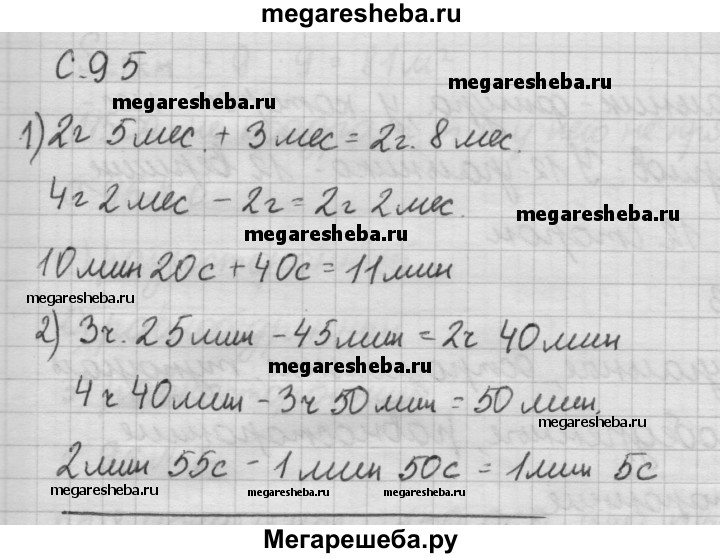 megaresheba.ru
С.95
megaresheba.ru
megaresheba.ru
1) 2г 5мес. + 3мес = 2г. 8мес.
4г 2мес - 2г = 2г 2мес.
megaresheba.ru
megaresheba.ru
10мин 20с + 40с = 11мин
megaresheba.ru
megaresheba.ru
2) 3ч. 25мин - 45мин = 2ч 40мин
megaresheba.ru
4ч 40мин - 3ч 50мин = 50мин.
megaresheba.ru
2мин 55с - 1мин 50с = 1мин 5с
megaresheba.ru megaresheba.ru megaresheba.ru
Мегарешеба.ру